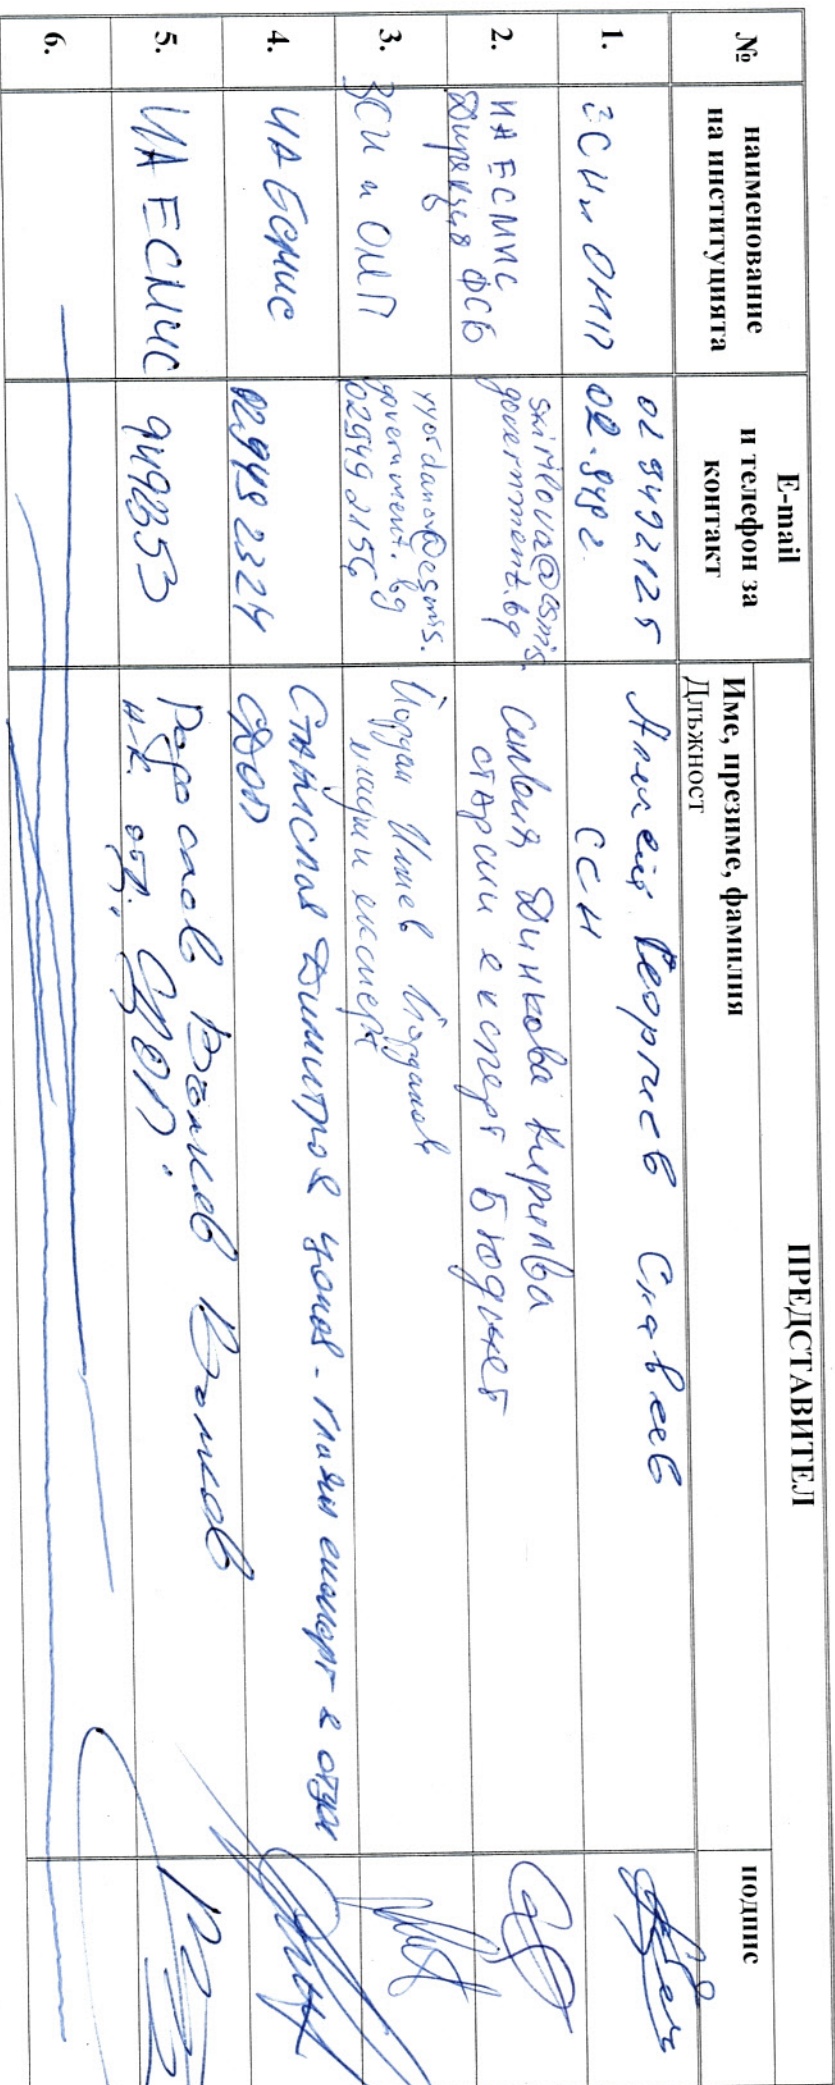 ПРЕДСТАВИТЕЛ
№
наименование
на институцията
E-mail
и телефон за
контакт
Име, презиме, фамилия
Длъжност
подпис
1.
ЗСИ и ОМП
02 9492125
02.949 2.
Георгиев Славеев
ССИ
2.
ИА ЕСМИС
Дирекция ФСБ
skirilova@esmis.
government.bg
Силвия Динкова Кирилова
старши експерт Бюджет
3.
ЗСИ и ОМП
yyordanov@esmis.
government.bg
029492156
Йордан Илиев Йорданов
младши експерт
4.
ИА ЕСМИС
029492324
Станислав Димитров - главен експерт в отдел
СДОП
5.
ИА ЕСМИС
9492353
Радослав Вълков
н-к отд. СДОП.
6.